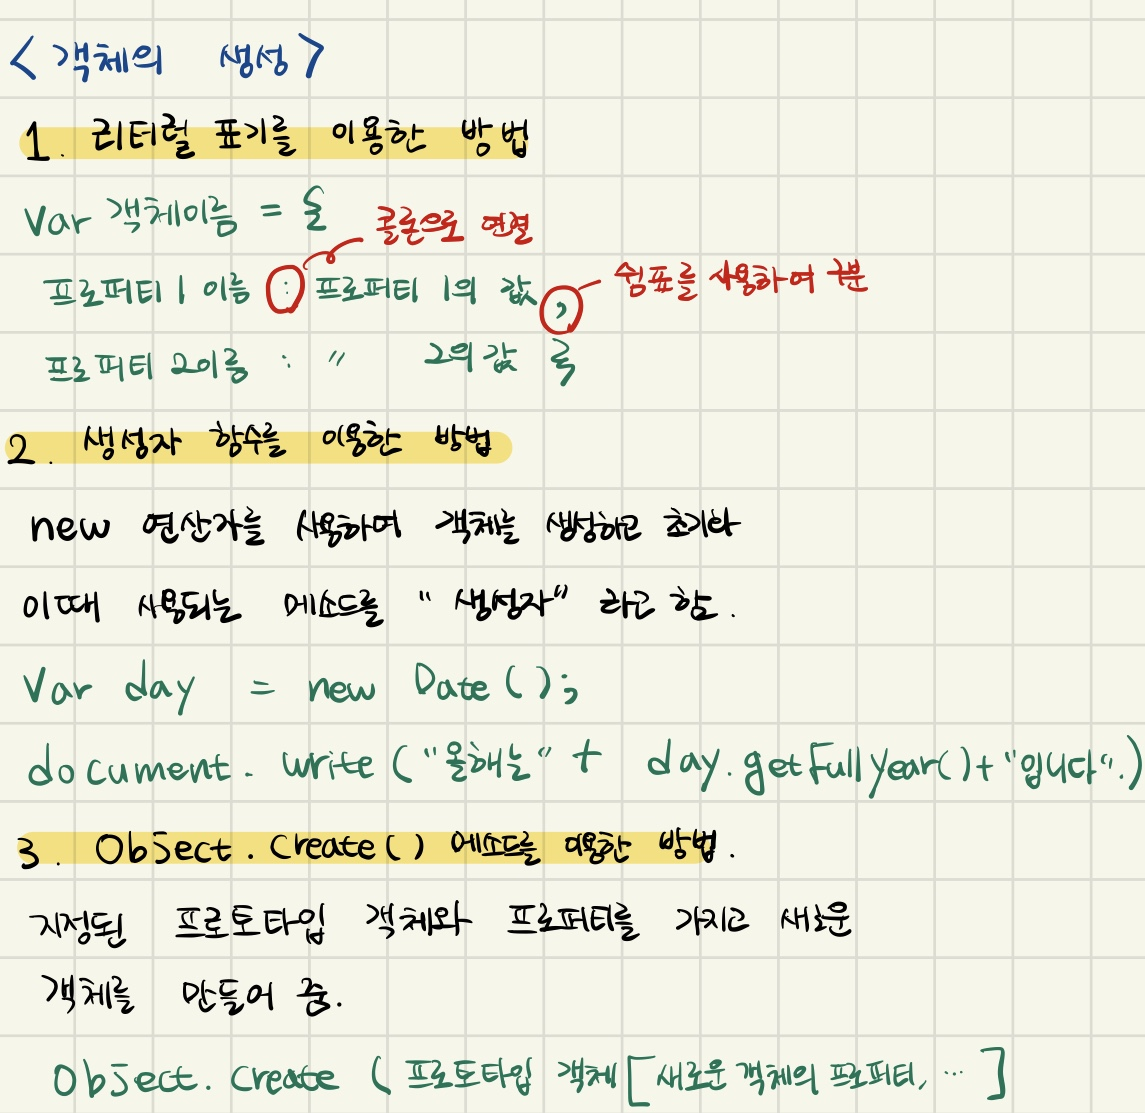 <객체의 생성>
1. 리터럴 표기를 이용한 방법
Var 객체이름 = {
콜론으로 연결
프로퍼티 1 이름 : 프로퍼티 1의 값,
쉼표를 사용하여 구분
프로퍼티 2이름 : " 2의 값
2. 생성자 함수를 이용한 방법
new 연산자를 사용하여 객체를 생성하고 초기화
이때 사용되는 메소드를 "생성자" 라고 함.
Var day = new Date();
document. write ("올해는" + day.getFullYear()+"입니다".)
3. Object. Create() 메소드를 이용한 방법.
지정된 프로토타입 객체와 프로퍼티를 가지고 새로운
객체를 만들어 줌.
Object. Create ( 프로토타입 객체 [새로운 객체의 프로퍼티, ... ]